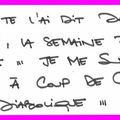 TE L'AI DIT
, LA SEMAINE
!!! JE ME S
À COUP DE
DIABOLIQUE !!!